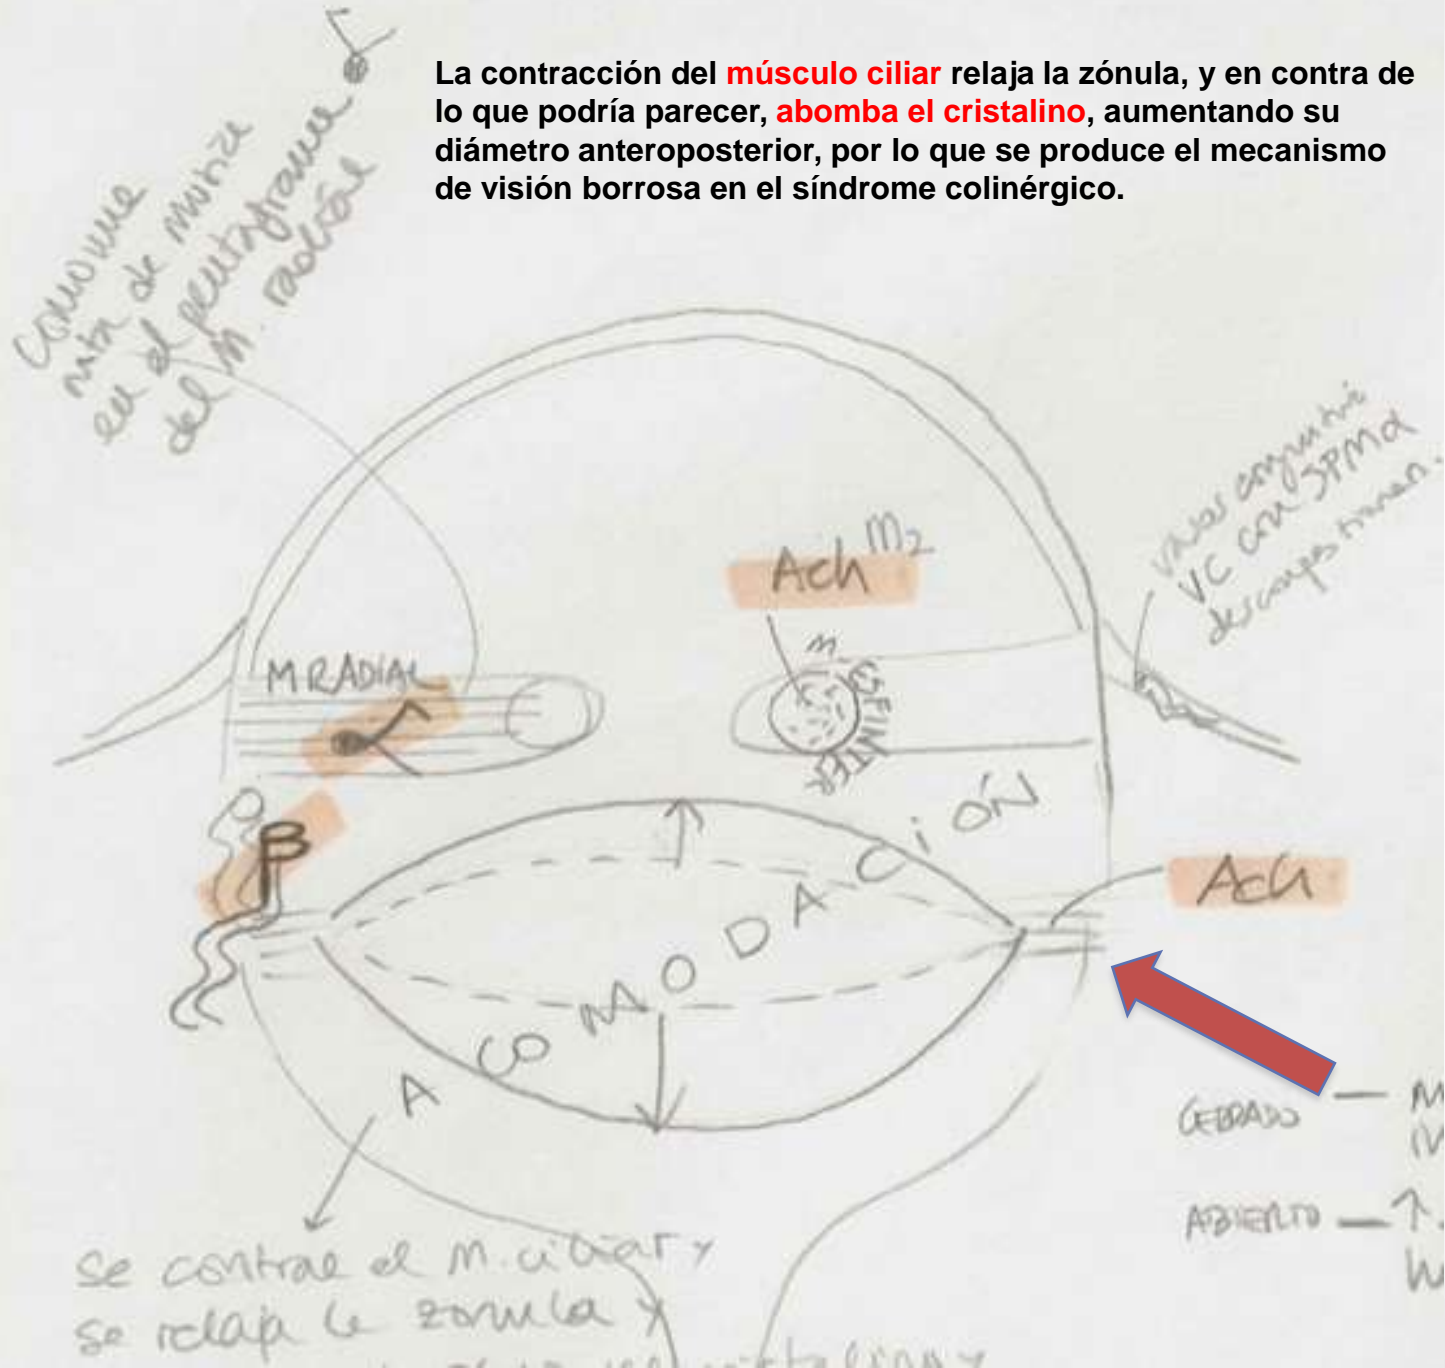 La contracción del músculo ciliar relaja la zónula, y en contra de
lo que podría parecer, abomba el cristalino, aumentando su
diámetro anteroposterior, por lo que se produce el mecanismo
de visión borrosa en el síndrome colinérgico.
de
en el pentagrama
del M. radial
Ach M2
VC con
M RADIAL
M. ESFINTER
β
Ach
ACOMODACIÓN
CERRADO — M
ABIERTO — ↑
se contrae el m. ciliar y
se relaja la zonula y